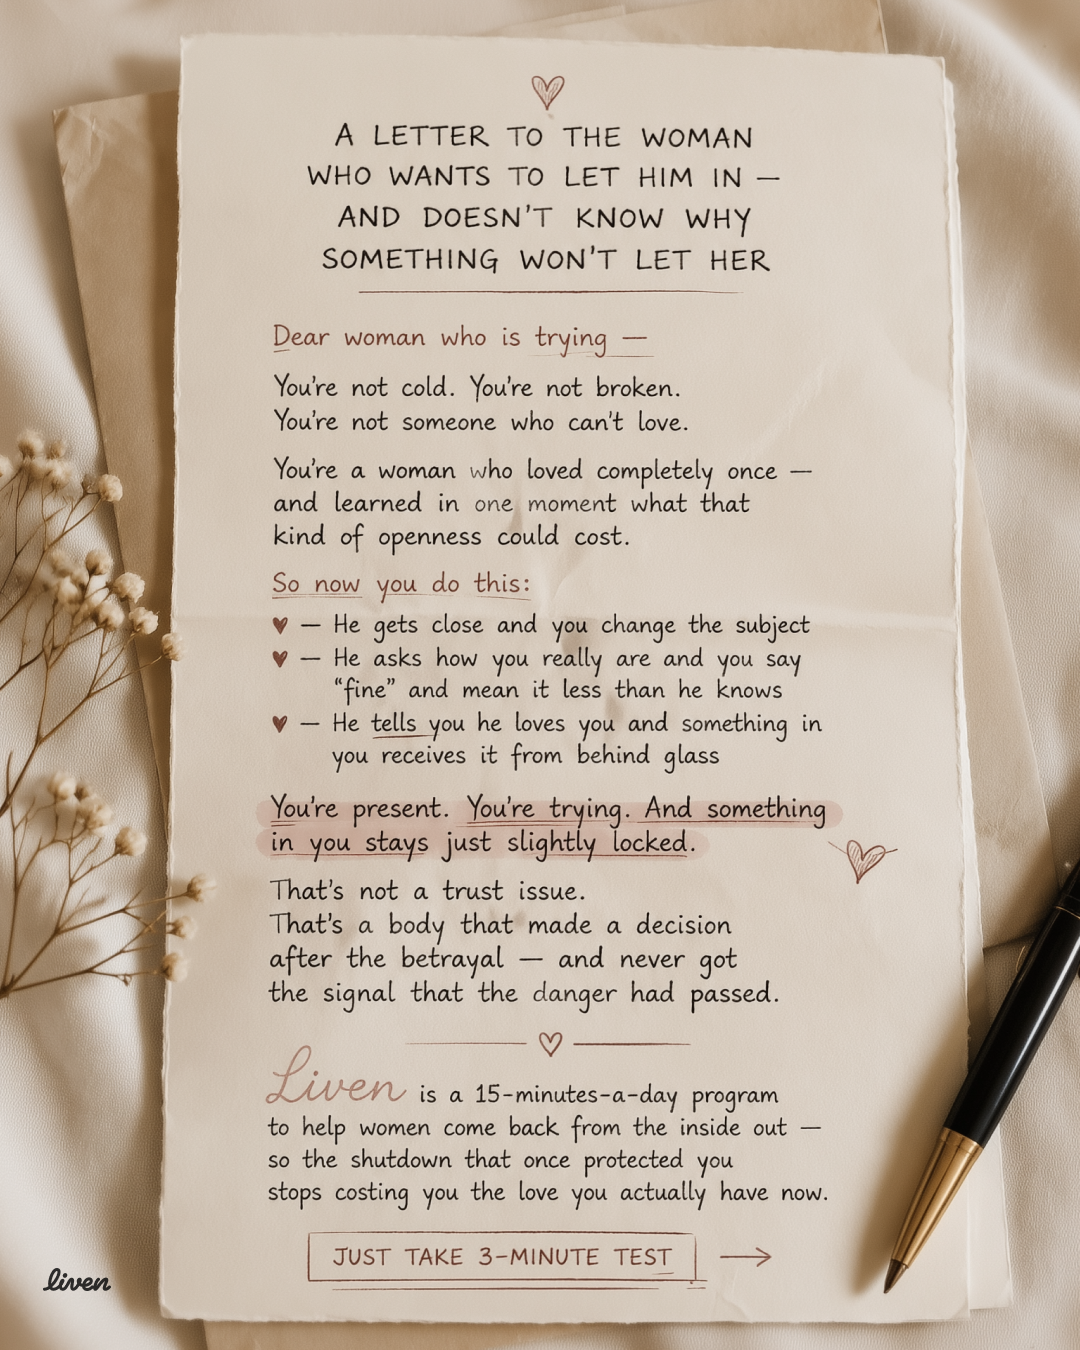 A LETTER TO THE WOMAN
WHO WANTS TO LET HIM IN —
AND DOESN'T KNOW WHY
SOMETHING WON'T LET HER
Dear woman who is trying —
You're not cold. You're not broken.
You're not someone who can't love.
You're a woman who loved completely once —
and learned in one moment what that
kind of openness could cost.
So now you do this:
♥ — He gets close and you change the subject
♥ — He asks how you really are and you say
“fine” and mean it less than he knows
♥ — He tells you he loves you and something in
you receives it from behind glass
You're present. You're trying. And something
in you stays just slightly locked.
That's not a trust issue.
That's a body that made a decision
after the betrayal — and never got
the signal that the danger had passed.
Liven is a 15-minutes-a-day program
to help women come back from the inside out —
so the shutdown that once protected you
stops costing you the love you actually have now.
JUST TAKE 3-MINUTE TEST →
liven